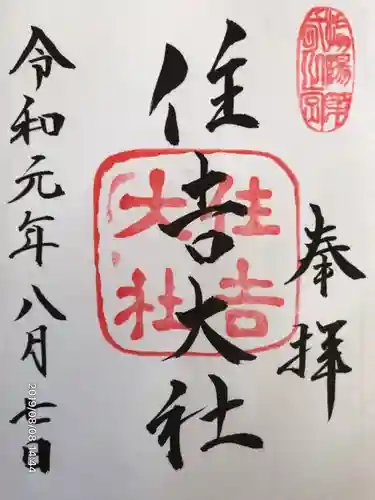 奉拝
住吉大社
住吉大社
令和元年八月七日
2019/08/08 14:44